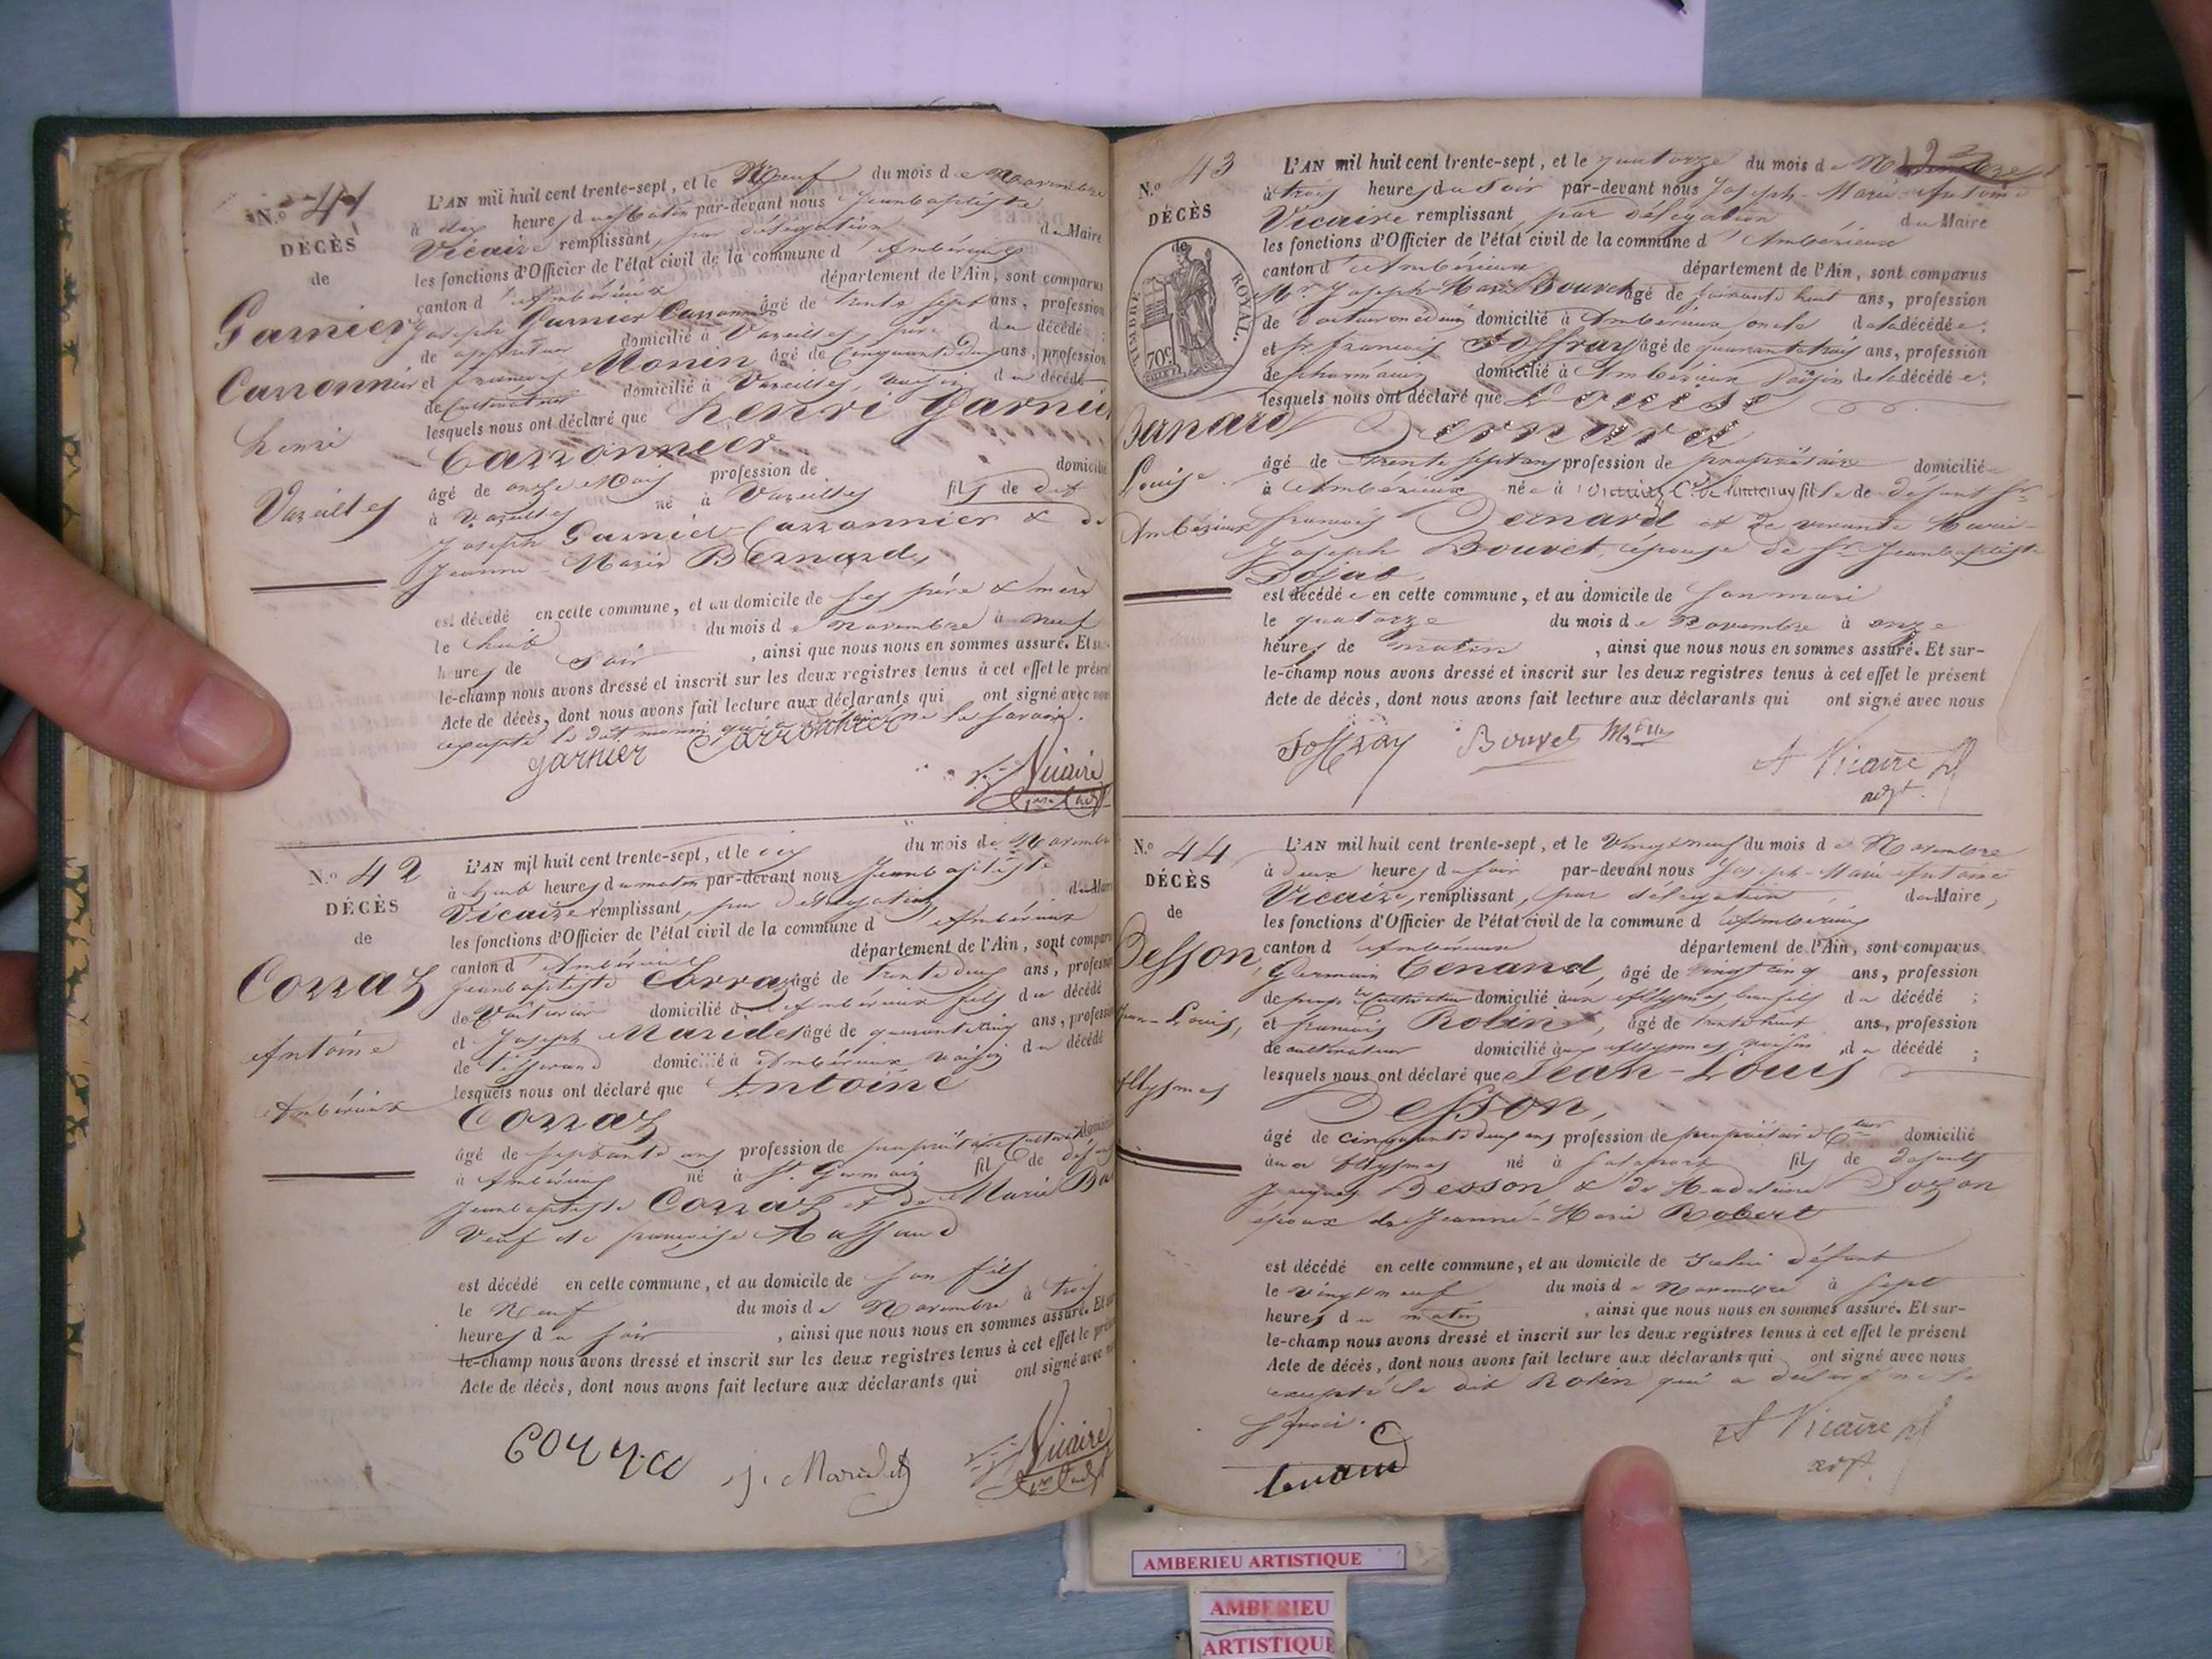 N.° 41
DÉCÈS
de
Garnier
Carronnier
henri
Vareilles
L'AN mil huit cent trente-sept, et le Neuf du mois de Novembre
à dix heures du Matin par-devant nous Jeanbaptiste
Vicaire remplissant, par délégation du Maire
les fonctions d'Officier de l'état civil de la commune d'Ambérieux
canton d'Ambérieux département de l'Ain, sont comparus
Joseph Garnier Carronnier âgé de trente sept ans, profession
de domicilié à Vareilles, père du décédé ;
et françois Monin âgé de Cinquante deux ans, profession
de Cultivateur domicilié à Vareilles, voisin du décédé
lesquels nous ont déclaré que henri Garnier
Carronnier
âgé de onze Mois profession de domicilié
à Vareilles né à Vareilles fils de dit
Joseph Garnier-Carronnier & de
Jeanne-Marie Bernard,
est décédé en cette commune, et au domicile de ses père & mère
le huit du mois de Novembre à neuf
heures de soir, ainsi que nous nous en sommes assuré. Et sur-
le-champ nous avons dressé et inscrit sur les deux registres tenus à cet effet le présent
Acte de décès, dont nous avons fait lecture aux déclarants qui ont signé avec nous
excepté le dit monin qui a déclaré ne le savoir.
garnier Carronnier
Vicaire
N.° 42
DÉCÈS
de
Corraz
Antoine
Ambérieux
L'AN mil huit cent trente-sept, et le dix du mois de Novembre
à huit heures du matin par-devant nous Jeanbaptiste
Vicaire remplissant, par délégation du Maire
les fonctions d'Officier de l'état civil de la commune d'Ambérieux
canton d'Ambérieux département de l'Ain, sont comparus
Jeanbaptiste Corraz âgé de trente deux ans, profession
de Voiturier domicilié à Ambérieux fils du décédé
et Joseph Maridet âgé de quarante cinq ans, profession
de tisserand domicilié à Ambérieux voisin du décédé
lesquels nous ont déclaré que Antoine
Corraz
âgé de septante ans profession de propriétaire Cultivateur domicilié
à Ambérieux né à St. Germain fils de défunt
Jeanbaptiste Corraz et de Marie
Veuf de françoise
est décédé en cette commune, et au domicile de son fils
le Neuf du mois de Novembre à trois
heures du soir, ainsi que nous nous en sommes assuré. Et sur
le-champ nous avons dressé et inscrit sur les deux registres tenus à cet effet le présent
Acte de décès, dont nous avons fait lecture aux déclarants qui ont signé avec nous
Corraz J. Maridet Vicaire
N.° 43
DÉCÈS
de
TIMBRE ROYAL.
70c
Bernard
Louise
Ambérieux
L'AN mil huit cent trente-sept, et le quatorze du mois de Novembre
à trois heures du soir par-devant nous Joseph-Marie-Antoine
Vicaire remplissant, par délégation du Maire
les fonctions d'Officier de l'état civil de la commune d'Ambérieux
canton d'Ambérieux département de l'Ain, sont comparus
Mr. Joseph-Marie Bouvet âgé de soixante huit ans, profession
de docteur médecin domicilié à Ambérieux oncle de la décédée ;
et Sr. françois Joffray âgé de quarante trois ans, profession
de pharmacien domicilié à Ambérieux voisin de la décédée ;
lesquels nous ont déclaré que Louise
Bernard
âgé de trente sept ans profession de propriétaire domiciliée
à Ambérieux née à fille de défunt Sr.
françois Bernard et de vivante Marie-
Joseph Bouvet, épouse de Sr. Jeanbaptiste
Dojat,
est décédée en cette commune, et au domicile de son mari
le quatorze du mois de Novembre à onze
heures de matin, ainsi que nous nous en sommes assuré. Et sur-
le-champ nous avons dressé et inscrit sur les deux registres tenus à cet effet le présent
Acte de décès, dont nous avons fait lecture aux déclarants qui ont signé avec nous
Joffray Bouvet A Vicaire
N.° 44
DÉCÈS
de
Besson,
Jean-Louis,
Allymes
L'AN mil huit cent trente-sept, et le Vingt neuf du mois de Novembre
à deux heures du soir par-devant nous Joseph-Marie-Antoine
Vicaire, remplissant, par délégation, du Maire,
les fonctions d'Officier de l'état civil de la commune d'Ambérieux
canton d'Ambérieux département de l'Ain, sont comparus
Germain Tenand, âgé de vingt cinq ans, profession
de cultivateur domicilié aux Allymes beau fils du décédé ;
et françois Robin, âgé de trente huit ans, profession
de cultivateur domicilié aux Allymes voisin du décédé ;
lesquels nous ont déclaré que Jean-Louis
Besson,
âgé de cinquante deux ans profession de propriétaire Cteur domicilié
aux Allymes né à fils de défunts
Jacques Besson & de Madeleine Bozon
époux de Jeanne-Marie Robert
est décédé en cette commune, et au domicile de défunt
le vingt neuf du mois de Novembre à sept
heures du matin, ainsi que nous nous en sommes assuré. Et sur-
le-champ nous avons dressé et inscrit sur les deux registres tenus à cet effet le présent
Acte de décès, dont nous avons fait lecture aux déclarants qui ont signé avec nous
excepté le dit Robin qui a déclaré ne le
savoir.
tenand A Vicaire
AMBERIEU ARTISTIQUE
AMBERIEU
ARTISTIQUE